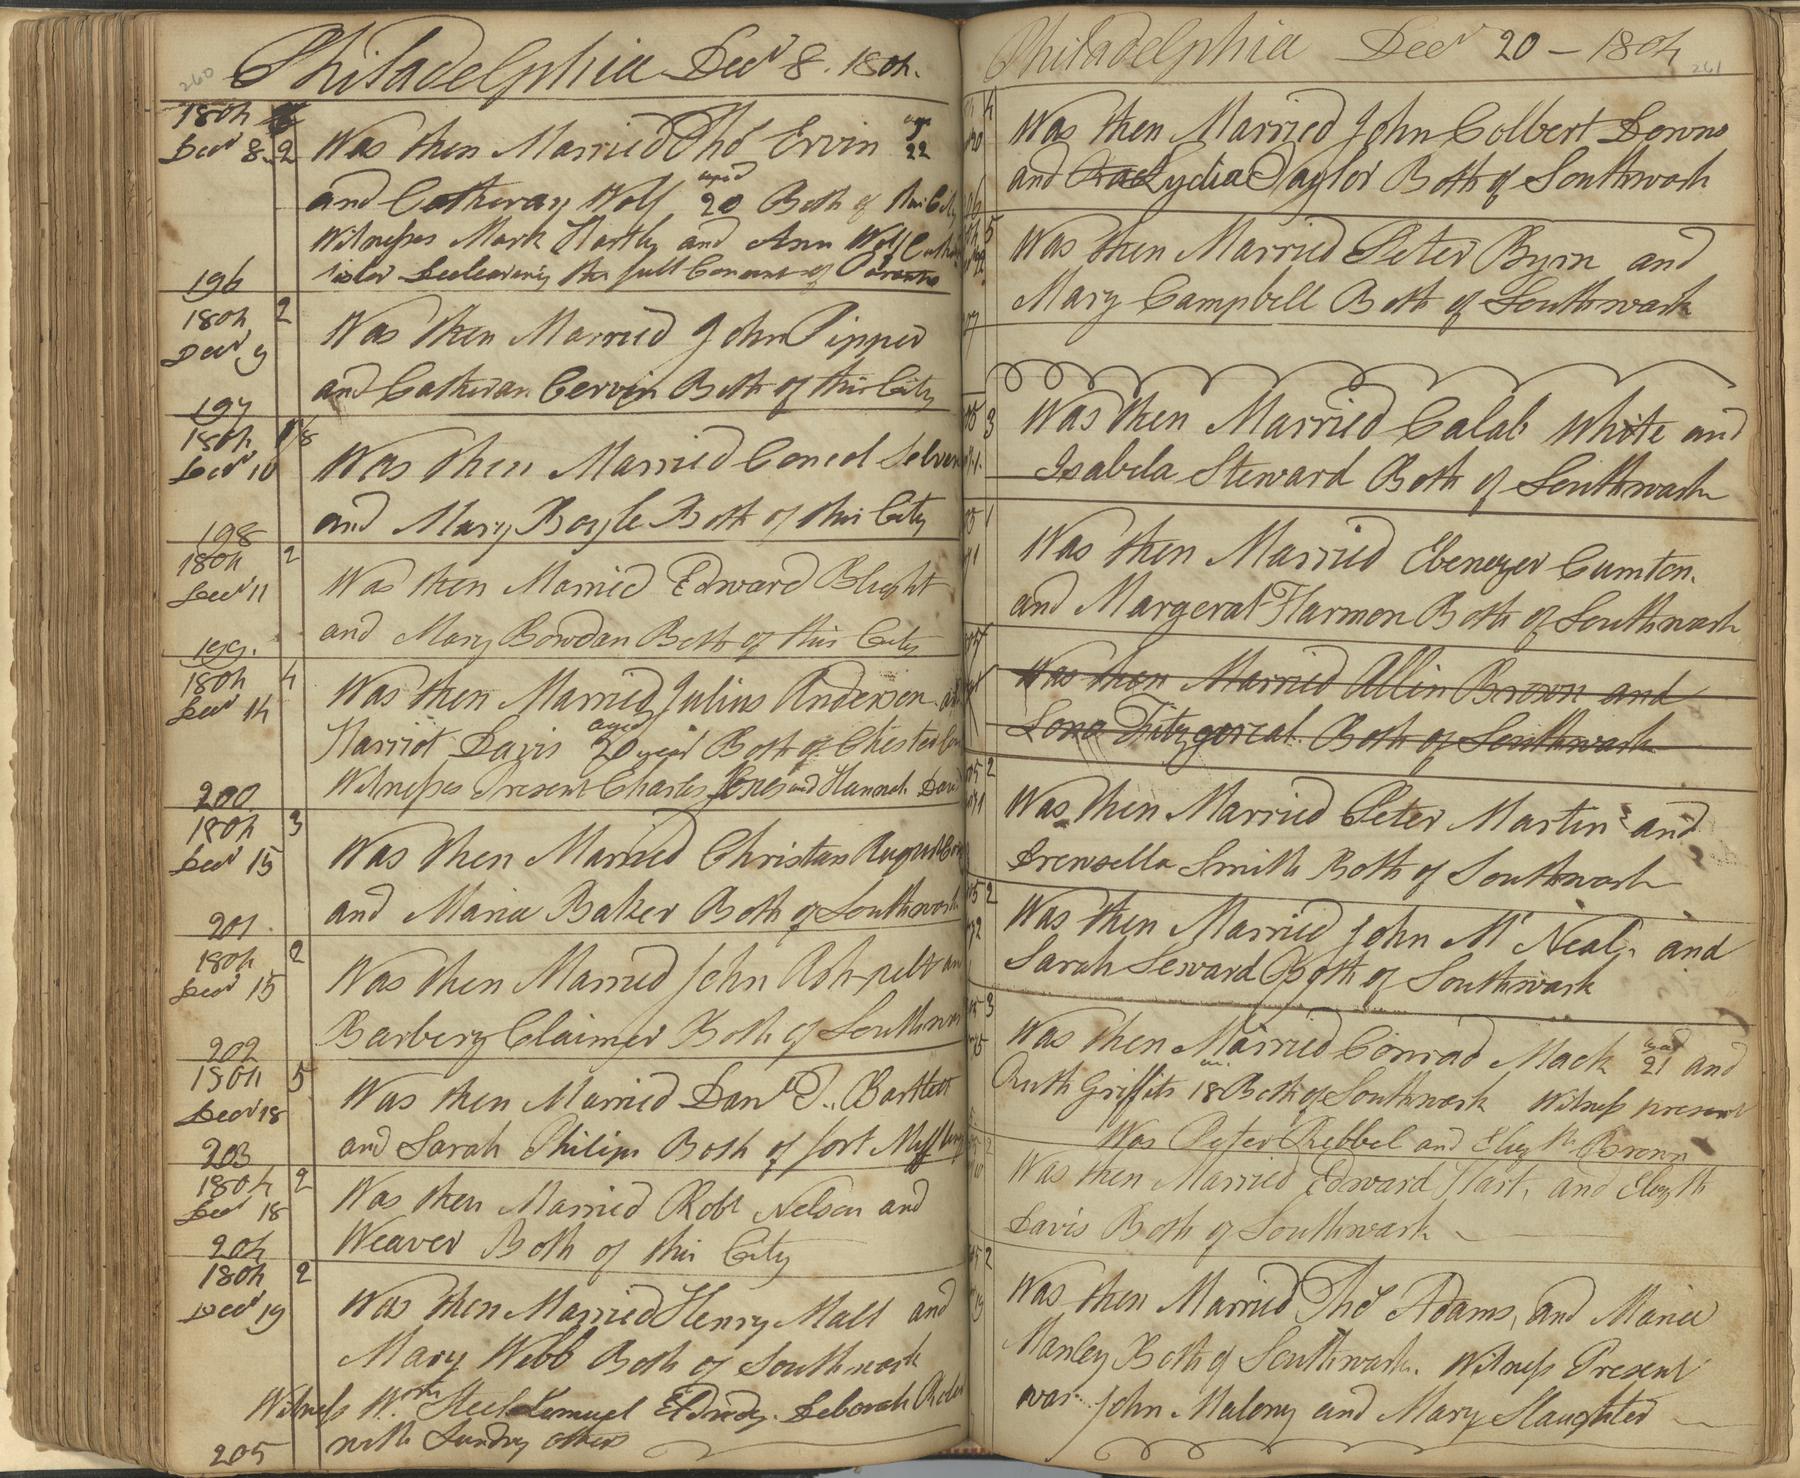 260
Philadelphia Decr 8. 1804.
1804
Decr 8. 2 Was then Married Thos Ervin age 22
and Catheran Wolf aged 20 Both of this City
Witnesses Mark Hartly and Ann Wolf
sister Declearing the full Concent of Parents
196
1804 2
Decr 9 Was then Married John Pipper
and Catheran Cervin Both of this City
197
1804
Decr 10 Was then Married Coned
and Mary Boyle Both of this City
198
1804 2
Decr 11 Was then Married Edward Blight
and Mary Bowdan Both of this City
199.
1804 4
Decr 14 Was then Married Julius Anderson
Harriot Davis aged 20 year Both of Chester
Witnesses Present Charles Jones and Hannah
200
1804 3
Decr 15 Was then Married Christan
and Maria Baker Both of Southwark
201.
1804 2
Decr 15 Was then Married John an
Barbery Claimer Both of
202
1804 5
Decr 18 Was then Married Danl T. Bartlett
and Sarah Philips Both of fort
203
1804 2
Decr 18 Was then Married Robt Nelson and
Weaver Both of this City
204
1804 2
Decr 19 Was then Married Henry Mall and
Mary Webb Both of Southwark
Witness Wm Steel Lemuel Eldredg. Deborah
with Sundry others
205
Philadelphia Decr 20 - 1804
261
4
Was then Married John Colbert Downs
and Lydia Taylor Both of Southwark
5
Was then Married Peter Byrn and
Mary Campbell Both of Southwark
3
Was then Married Calab White and
Isabela Steward Both of Southwark
1
Was then Married Ebenezer Cumton.
and Margerat Harmon Both of Southwark
Was then Married Allin Brown and
Both of Southwark
2
Was then Married Peter Martin and
Drewsella Smith Both of Southwark
2
Was then Married John Mc Neal, and
Sarah Seward Both of Southwark
3
Was then Married Conrad Mack aged 21 and
Ruth Griffits 18 Both of Southwark Witness present
Was Peter Rebbel and Elizth Brown
2
Was then Married Edward Hart, and Elizth
Davis Both of Southwark
2
Was then Married Thos Adams, and Maria
Manley Both of Southwark. Witness Present
was John Malony and Mary Slaughter